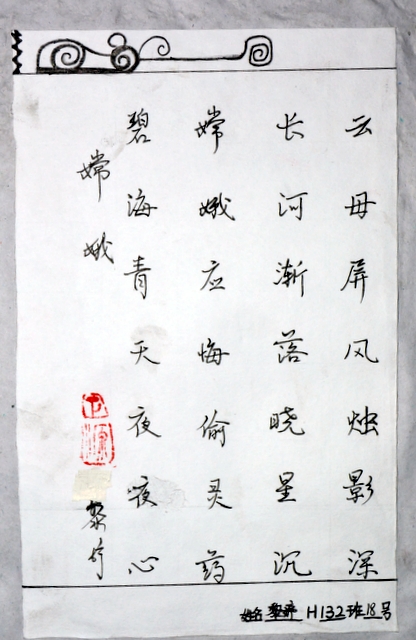 云母屏风烛影深
长河渐落晓星沉
嫦娥应悔偷灵药
碧海青天夜夜心
嫦娥
黎
H132班18号